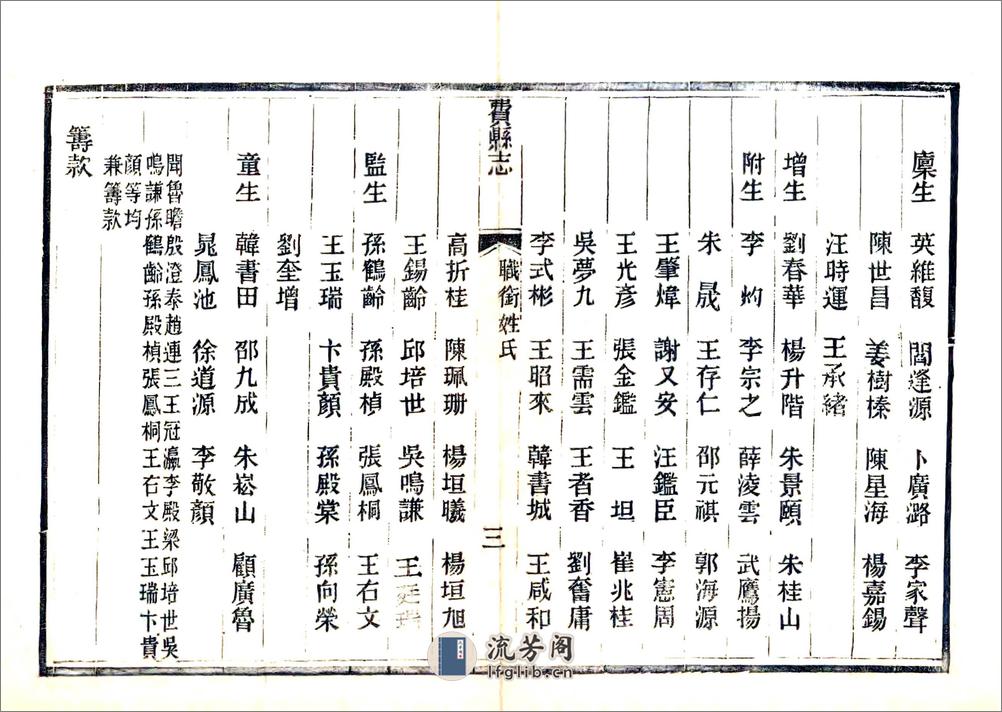 廩生 英維馥 閻逢源 卜廣潞 李家聲
陳世昌 姜樹榛 陳星海 楊嘉錫
汪時運 王承緒
增生 劉春華 楊升階 朱景頤 朱桂山
附生 李灼 李宗之 薛淩雲 武鷹揚
朱晟 王存仁 邵元祺 郭海源
王肇煒 謝又安 汪鑑臣 李憲周
王光彥 張金鑑 王坦 崔兆桂
吳夢九 王需雲 王者香 劉奮庸
李式彬 王昭來 韓書城 王咸和
費縣志 職銜姓氏 三
高折桂 陳珮珊 楊垣曦 楊垣旭
王錫齡 邱培世 吳鳴謙 王廷
監生 孫鶴齡 孫殿楨 張鳳桐 王右文
王玉瑞 卞貴顏 孫殿棠 孫向榮
劉奎增
童生 韓書田 邵九成 朱崧山 顧廣魯
晁鳳池 徐道源 李敬顏
閆魯瞻殷澄泰趙連三王冠瀛李殿梁邱培世吳
鳴謙孫鶴齡孫殿楨張鳳桐王右文王玉瑞卞貴
顏等均
兼籌款
籌款
流芳阁
lfglib.cn